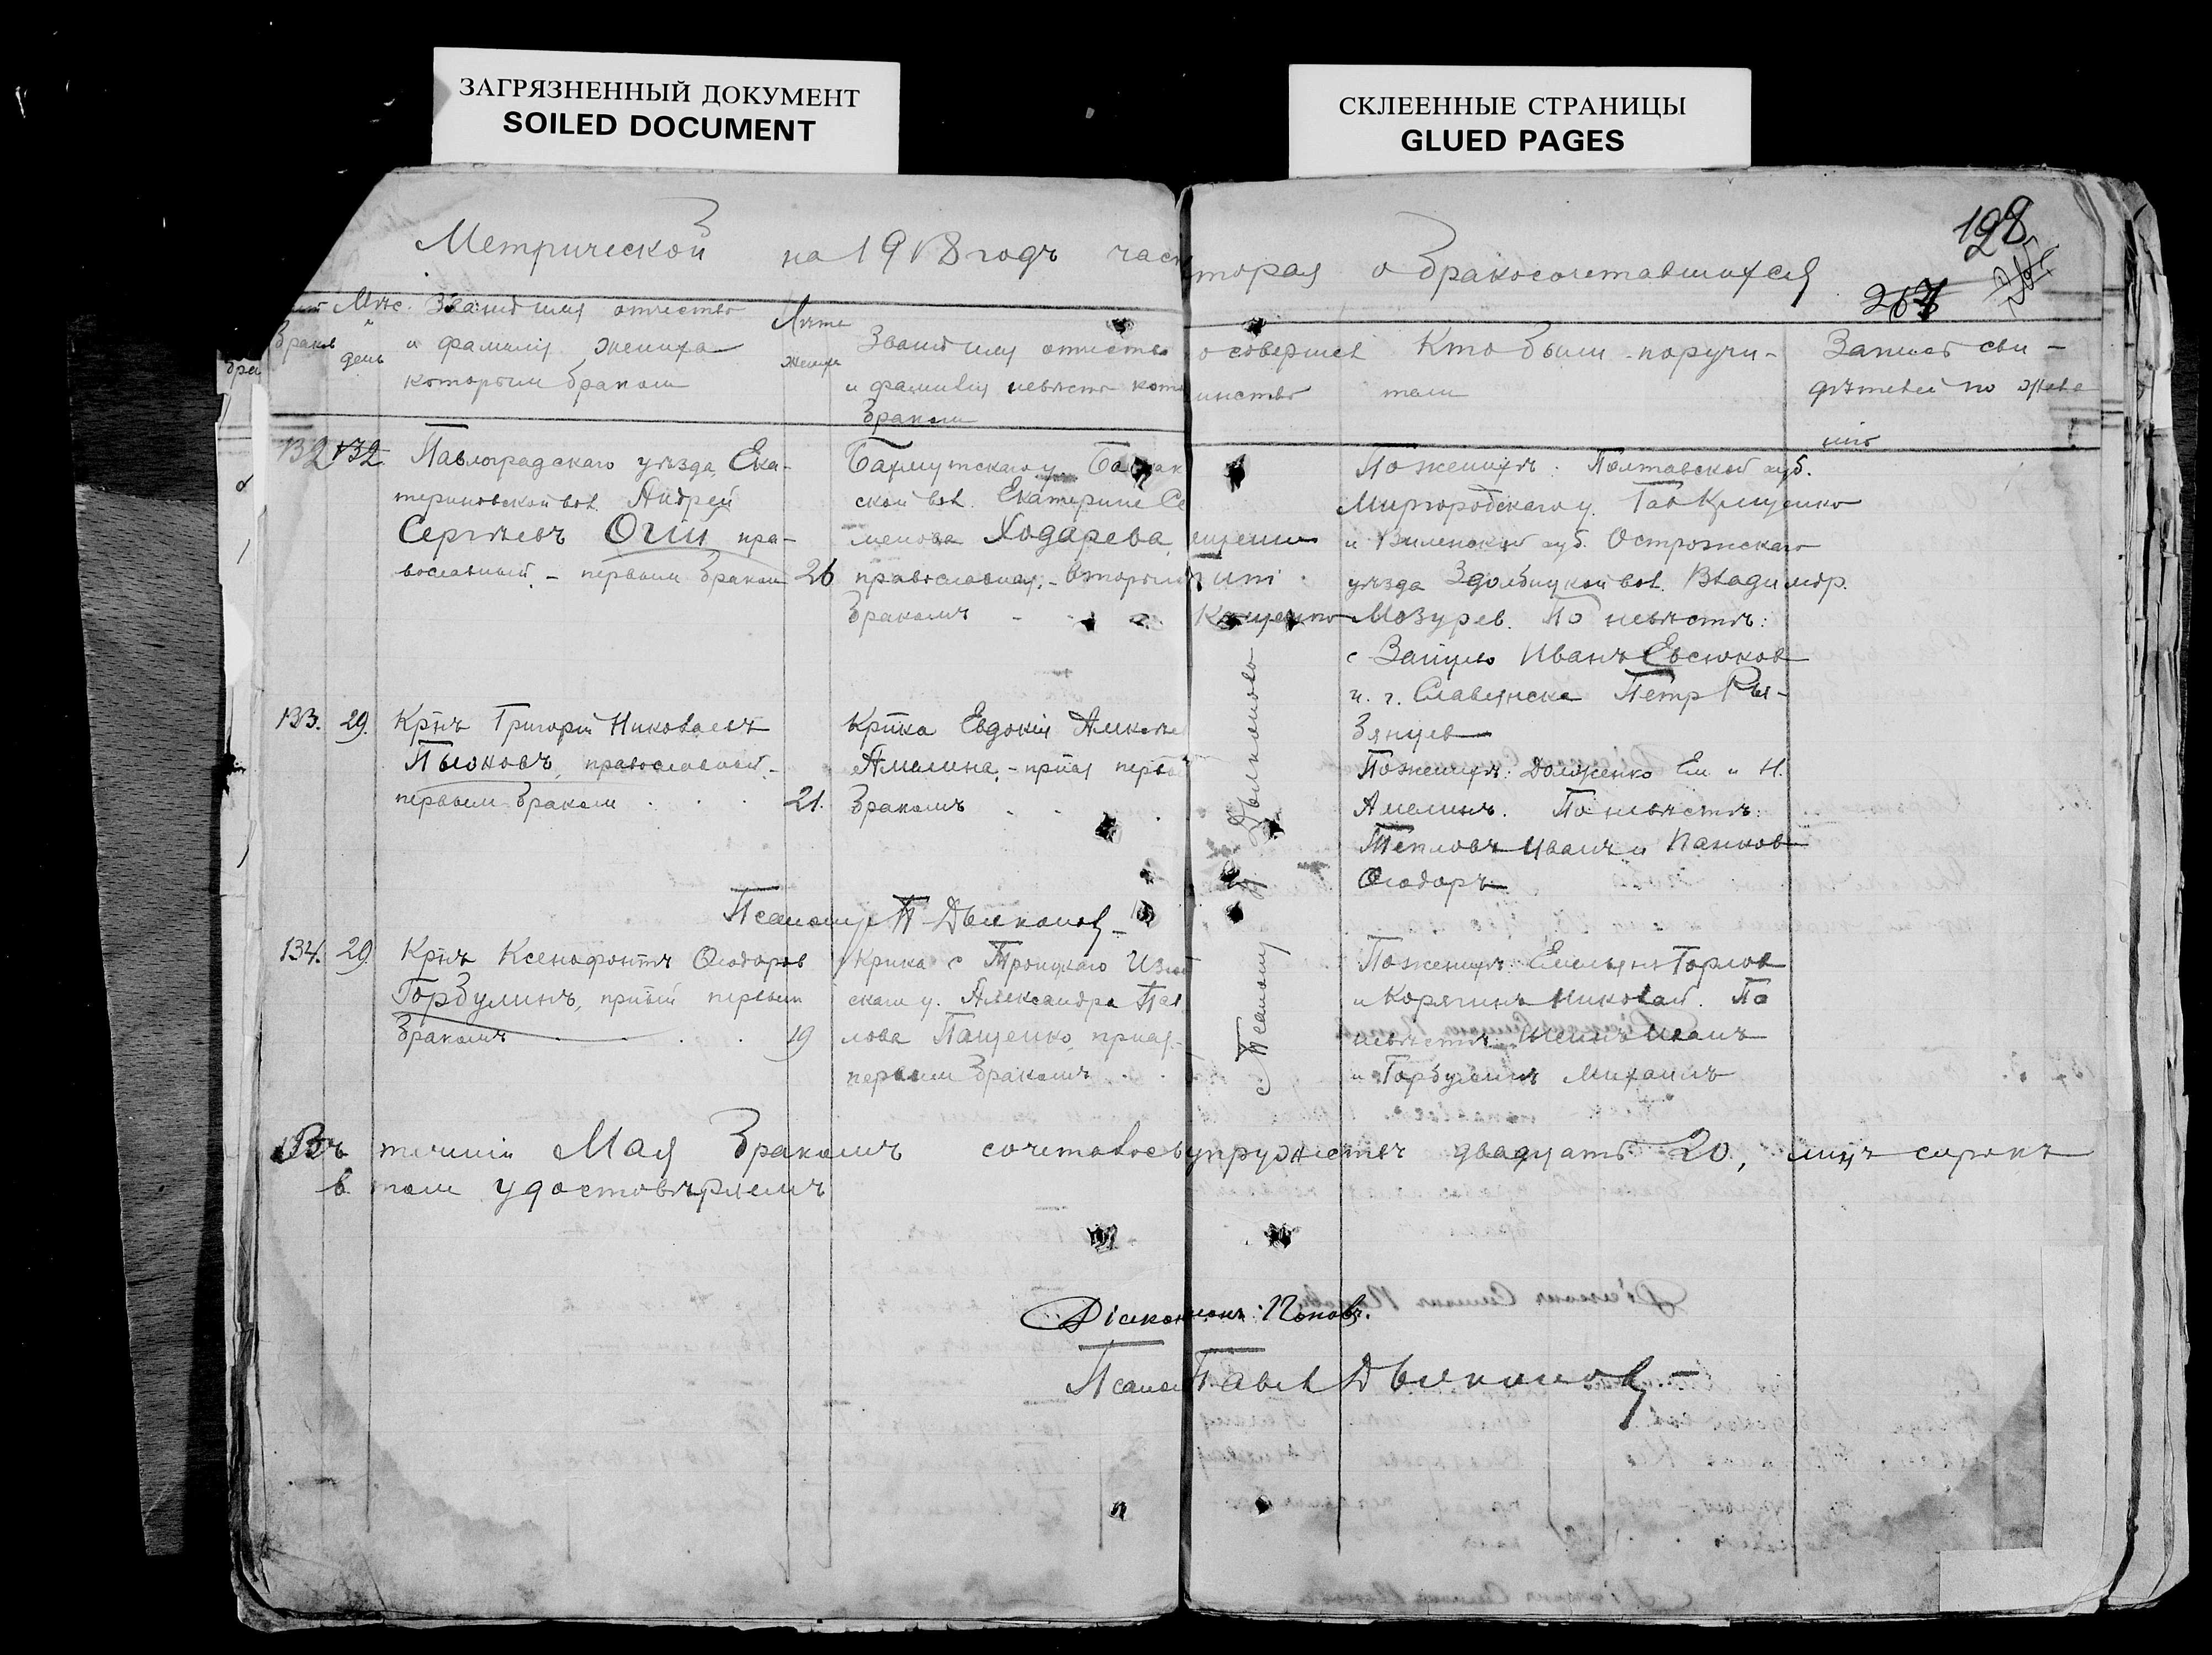 ЗАГРЯЗНЕННЫЙ ДОКУМЕНТ
SOILED DOCUMENT
СКЛЕЕННЫЕ СТРАНИЦЫ
GLUED PAGES
128
267
Метрической на 1918 годъ час торая о бракосочетавшихся
Мѣс. и день
Званіе имя отчество
и фамилія жениха
которым браком
Лѣта
жениха
Званіе имя отчество
и фамилія невѣсты кото
браком
о соверше
инство
Кто были поручи-
тели
132 132
Павлоградскаго уѣзда, Ека-
териновской вол. Андрей
Сергѣевъ Огий пра-
вославный. - первым браком 26
Бахмутскаго у.
ской вол. Екатерина Се
менова Ходарева,
православная, - вторым
бракомъ
По женихѣ: Полтавской губ.
Миргородскаго у.
и Виленской губ. Острожскаго
уѣзда Здолбицкой вол. Владимір.
Мозурев. По невѣстѣ:
с Зайцево Иванъ Евсюков
и г. Славянска Петр Ря-
занцев
133. 29. Кр̃нъ Григорій Николаевъ
Пьяновъ, православный -
первым браком 21.
Кр̃нка Евдокія Алексѣе
Амелина, - пр̃ная первы
бракомъ
По женихѣ: Долженко Ем. и Н.
Амелинъ. По невѣстѣ:
Тепловъ Иванъ и Панков
Ѳеодоръ
Псаломщ. П. Дьяконов
134. 29. Кр̃нъ Ксенофонтъ Ѳеодоров
Горбулинъ, пр̃ный первым
бракомъ 19
Кр̃нка с Троицкаго Изюм
скаго у. Александра Пав
лова Пащенко, пр̃ная -
первым бракомъ
По женихѣ: Емельянъ Горлов
и Корягинъ Николай. По
невѣстѣ: Иванъ
и Горбулинъ Михаилъ
Псаломщ. Дьяконовъ
Въ теченіи Мая бракомъ сочеталось упружествъ двадцать 20, лицъ сорокъ
в том удостовѣряемъ
Діаконъ: Поповъ.
Псалом Павел Дьяконов